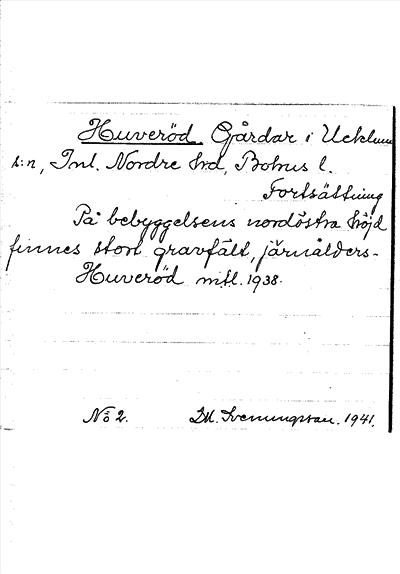 Huveröd. Gårdar i Ucklum
s:n, Inl. Nordre hrd, Bohus l.
Fortsättning
På bebyggelsens nordöstra höjd
finnes stort gravfält, järnålders-
Huveröd mtl. 1938.
No 2. D.M. Svenningsson. 1941.